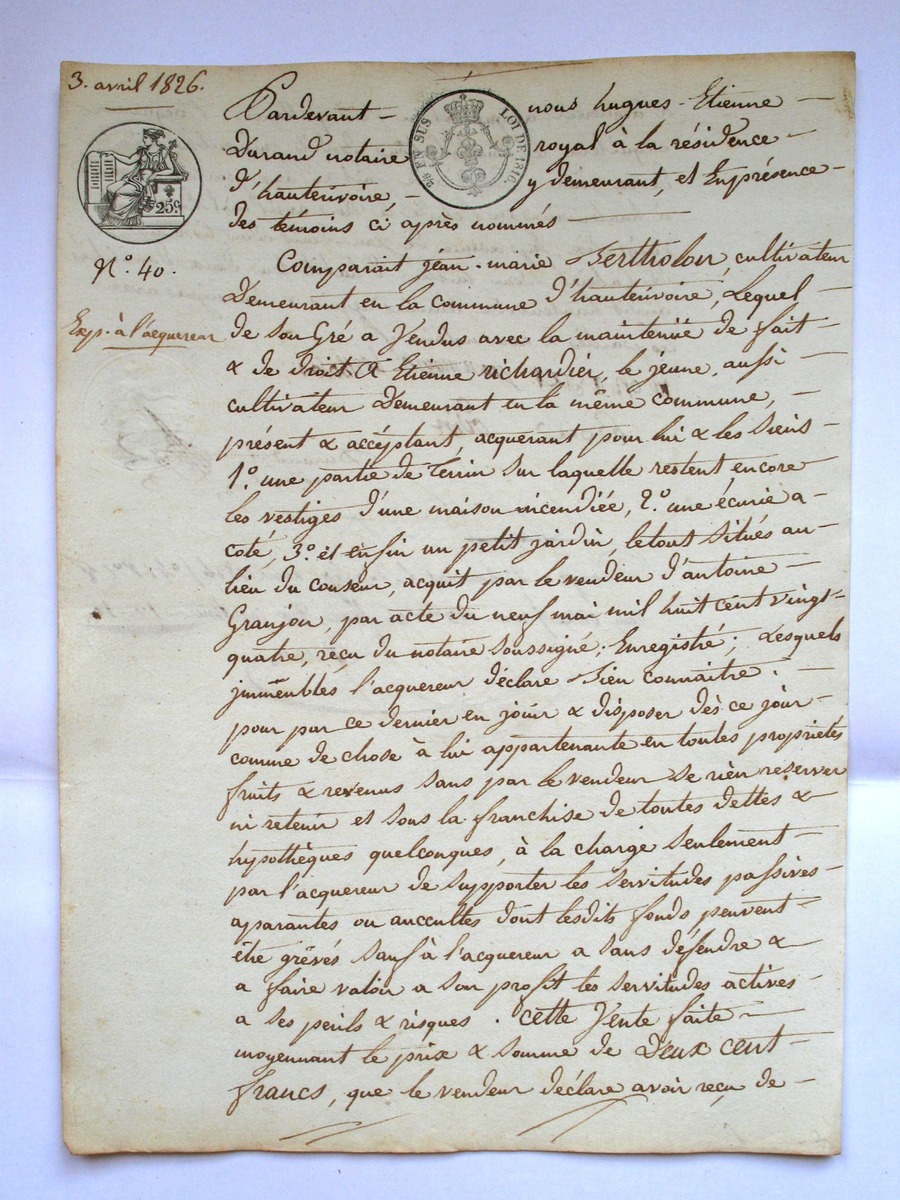 3. avril 1826.
25c
N.o 40.
Exp. à l'acquereur
28 EN SUS LOI DE 1816.
Pardevant nous hugues-Etienne
Durand notaire royal à la résidence
d'hauterivoire, y demeurant, et En présence
des témoins ci après nommés
Comparait jean-marie Bertholon, cultivateur
Demeurant en la commune d'hauterivoire, Lequel
de son Gré a Vendus avec la maintenüe de fait
& de droit A Etienne richardier, le jeune, aussi
cultivateur Demeurant en la même commune,
présent & accéptant, acquerant pour lui & les siens
1.o une partie de Terrin sur laquelle restent encore
les vestiges d'une maison incendiée, 2.o une écurie a
coté, 3.o et enfin un petit jardin, le tout situés au
lieu du couseur, acquit par le vendeur d'antoine
Granjon, par acte du neuf mai mil huit cent vingt-
quatre, reçu du notaire soussigné; Enregistré; Lesquels
jmmeubles l'acquereur déclare Bien connaitre.
pour par ce dernier en joüir & disposer dès ce jour
comme de chose à lui appartenante en toutes propriétés
fruits & revenus sans par le vendeur se rièn reserver
ni retenir et sous la franchise de toutes dettes &
hypothèques quelconques, à la charge seulement
par l'acquereur de supporter les servitudes passives
aparantes ou auccultes dont lesdits fonds peuvent
être grévés sauf à l'acquereur a sans défendre &
a faire valoir a son profit les servitudes actives
a ses perils & risques. cette Vente faite
moyennant le prix & somme de Deux cent
francs, que le vendeur déclare avoir reçu de